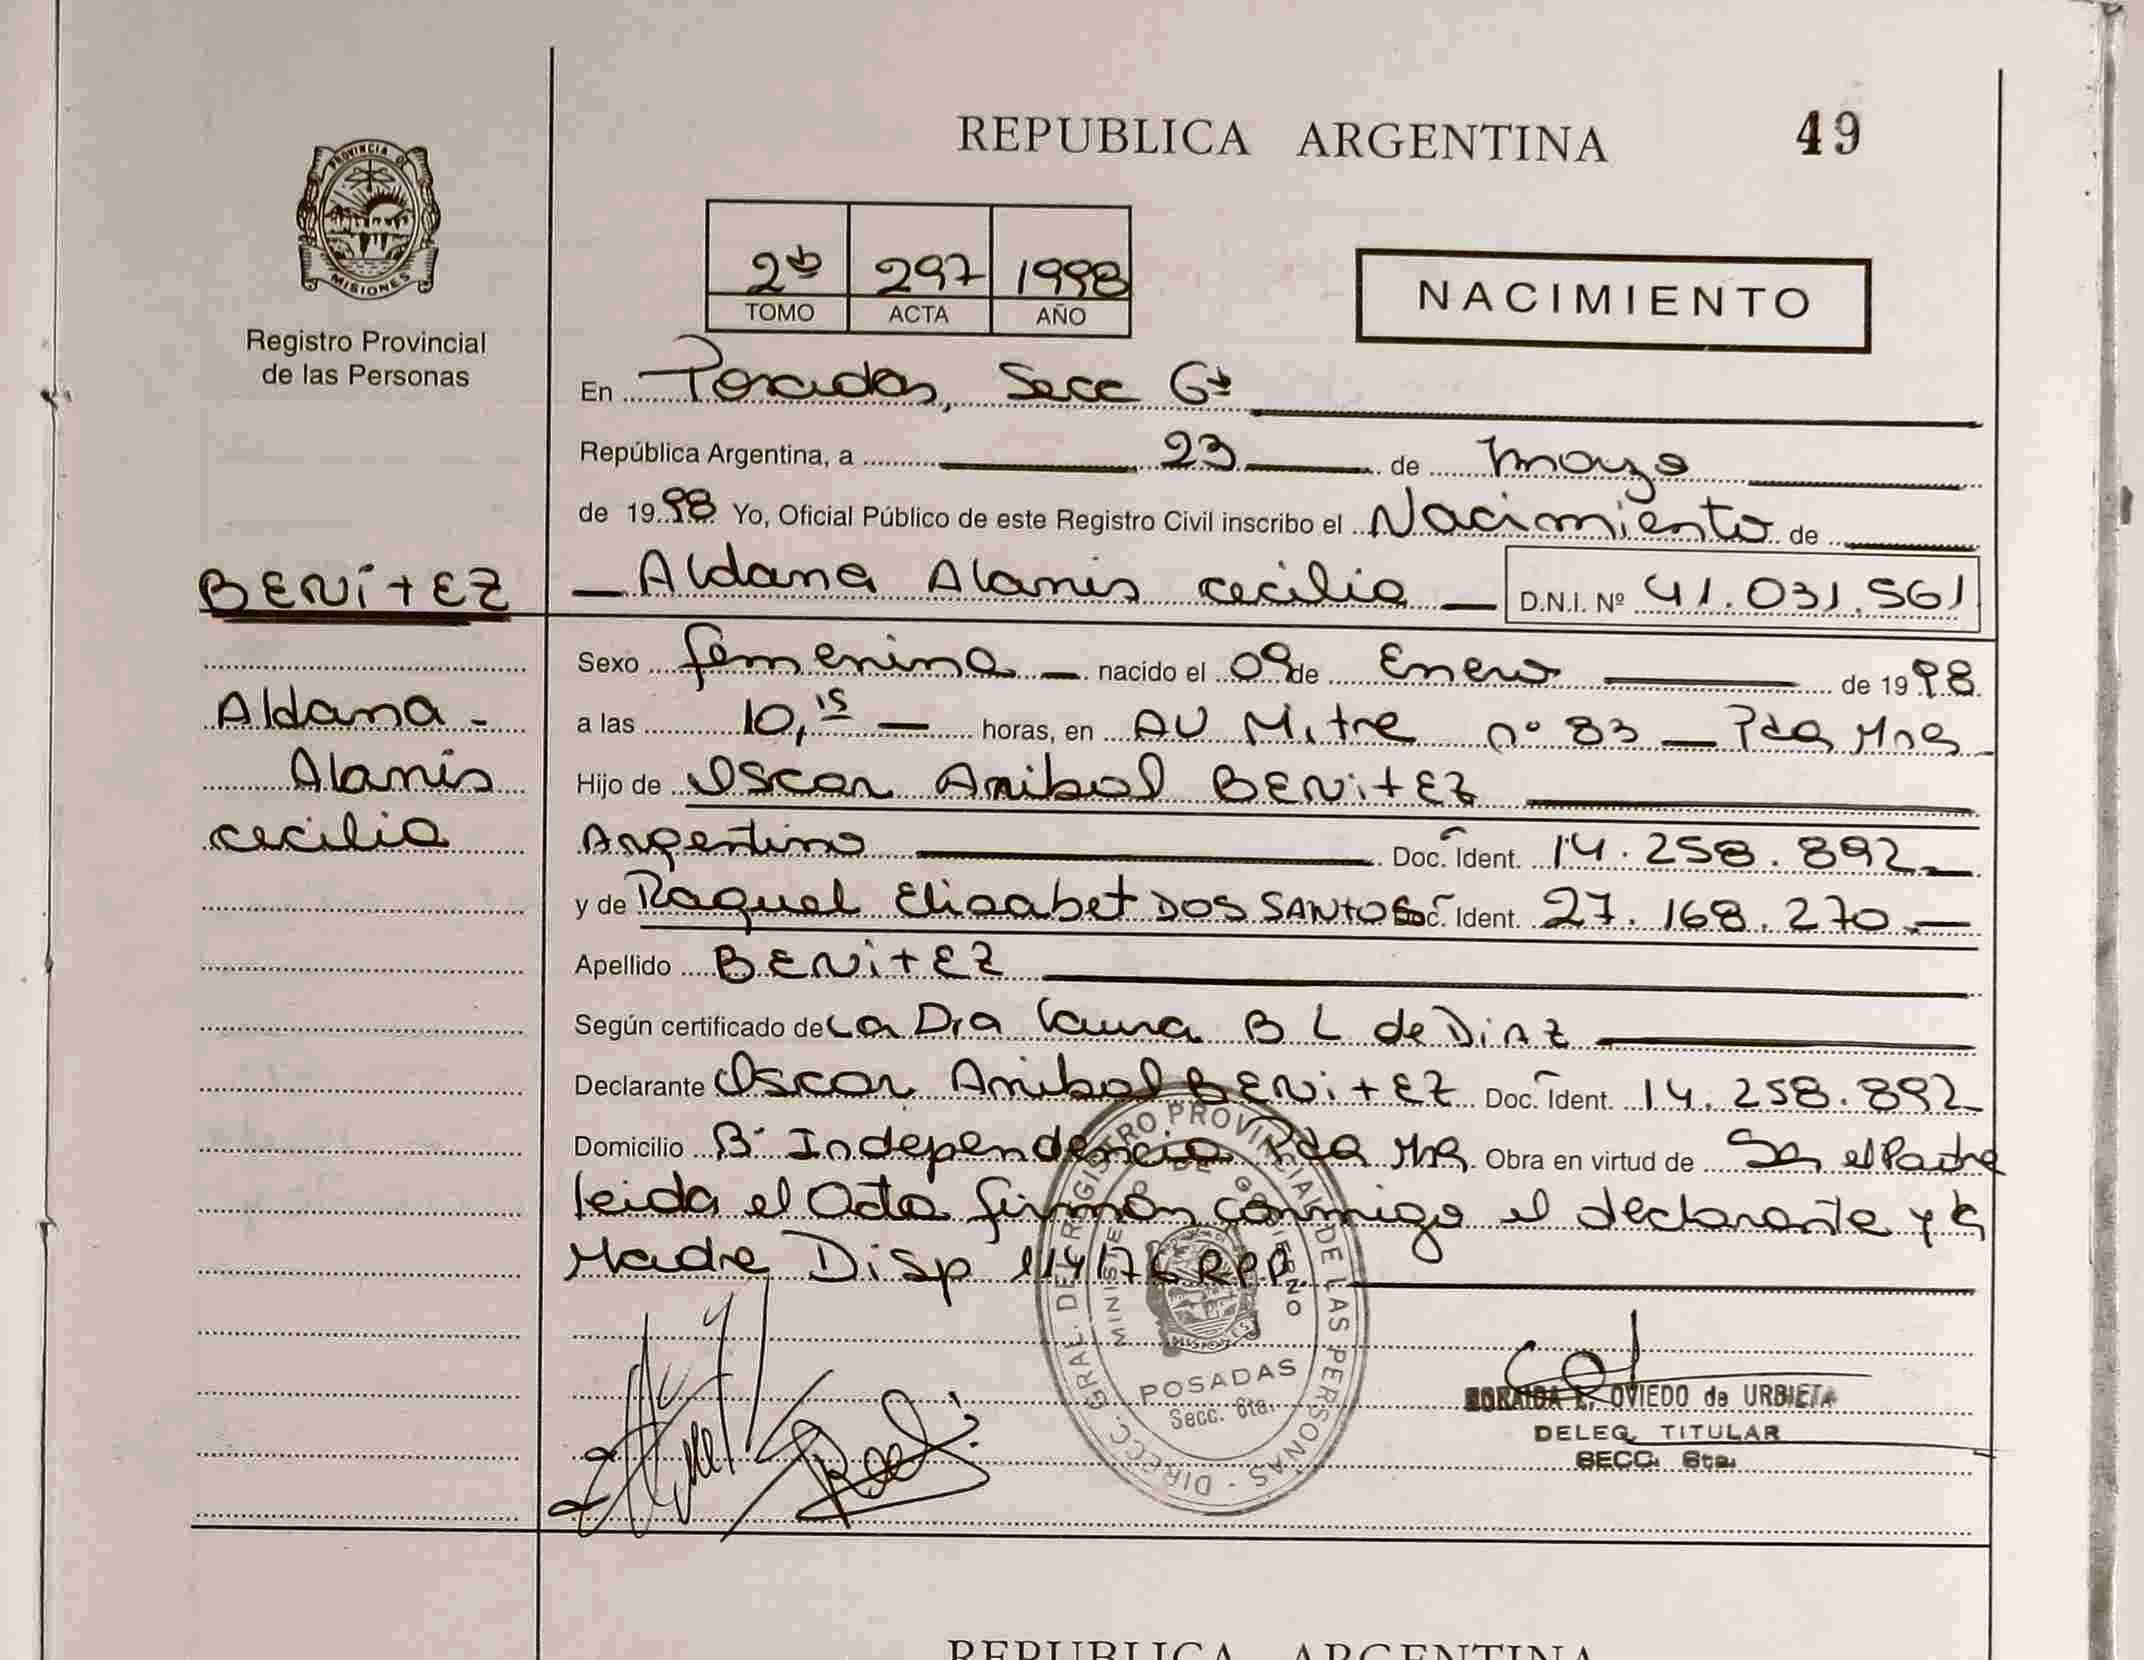 REPUBLICA ARGENTINA 49
PROVINCIA DE
MISIONES
Registro Provincial
de las Personas
2º 297 1998
TOMO ACTA AÑO
NACIMIENTO
En Posadas, Secc 6ª
República Argentina, a 23 de mayo
de 1998 Yo, Oficial Público de este Registro Civil inscribo el Nacimiento de
BENITEZ
Aldana Alanis cecilia D.N.I. Nº 41.031.561
Sexo femenina nacido el 09 de Enero de 1998
Aldana
Alanis
cecilia
a las 10,15 horas, en AV Mitre nº 83 Pdas Mns
Hijo de Oscar Anibal BENITEZ
Argentino Doc. Ident. 14.258.892
y de Raquel Elisabet DOS SANTOS Doc. Ident. 27.168.270
Apellido BENITEZ
Según certificado de La Dra Laura B L de DIAZ
Declarante Oscar Anibal BENITEZ Doc. Ident. 14.258.892
Domicilio Bº Independencia Pdas Mns Obra en virtud de Ser el Padre
leida el Acta firman conmigo el declarante y la
Madre Disp 114/76 RPP.
DIRECC. GRAL. DEL REGISTRO PROVINCIAL DE LAS PERSONAS
MINISTERIO DE GOBIERNO
POSADAS
Secc. 6ta.
ZORAIDA E. OVIEDO de URBIETA
DELEG. TITULAR
SECC. 6ta.
REPUBLICA ARGENTINA